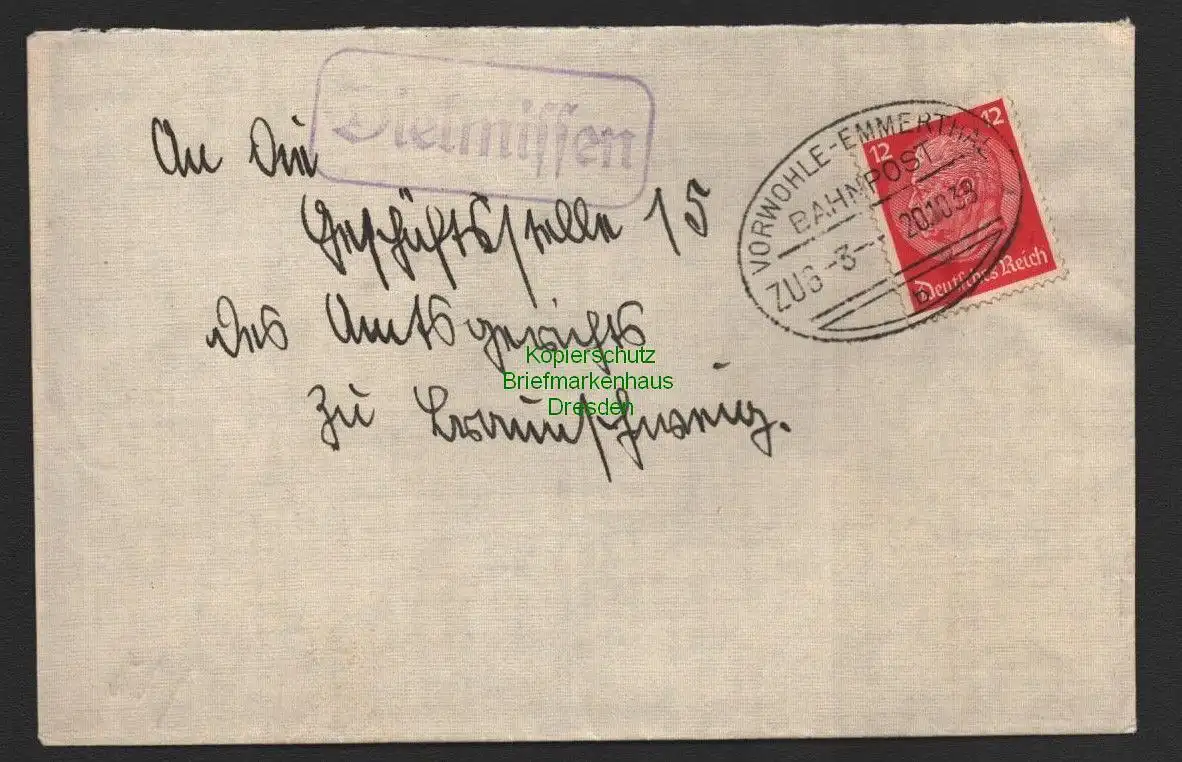 Dielmissen
An die
Geschäftsstelle 15
des Amtsgerichts
zu Braunschweig.
VORWOHLE-EMMERTHAL
BAHNPOST
ZUG -3-- 20.10.38
12 12
Deutsches Reich
Kopierschutz
Briefmarkenhaus
Dresden